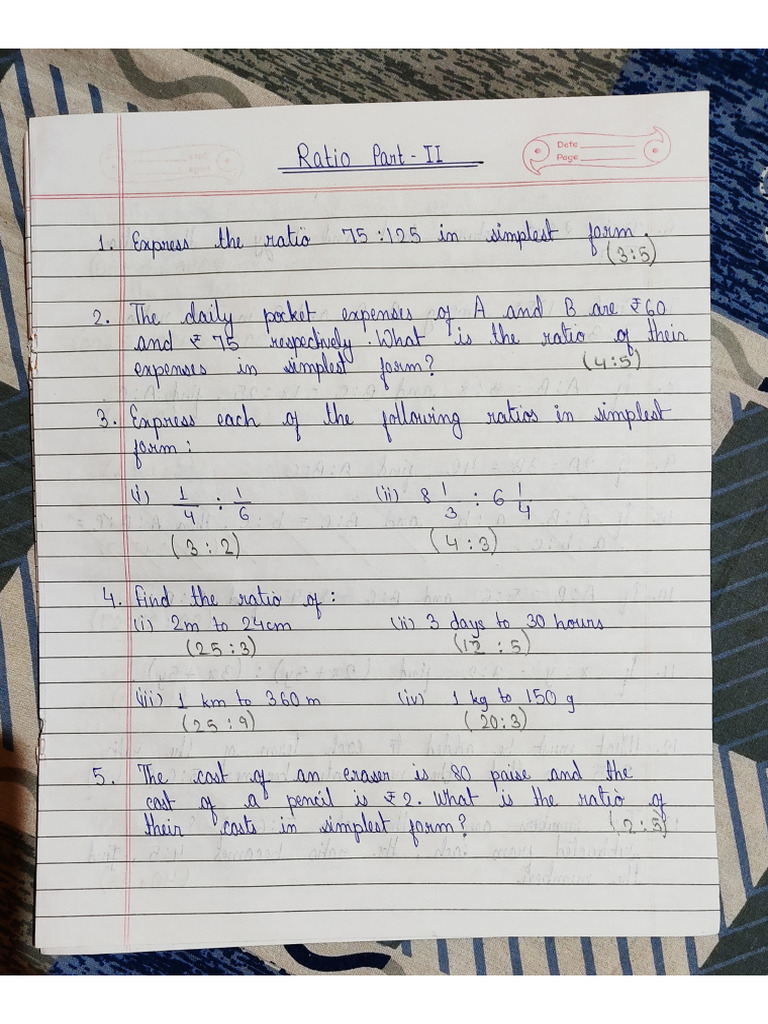 Ratio Part - II
Date
Page
1. Express the ratio 75 : 125 in simplest form.
(3:5)
2. The daily pocket expenses of A and B are ₹60
and ₹ 75 respectively. What is the ratio of their
expenses in simplest form? (4:5)
3. Express each of the following ratios in simplest
form:
(i) 1/4 : 1/6 (ii) 8 1/3 : 6 1/4
(3 : 2) (4 : 3)
4. Find the ratio of:
(i) 2m to 24cm (ii) 3 days to 30 hours
(25 : 3) (12 : 5)
(iii) 1 km to 360 m (iv) 1 kg to 150 g
(25 : 9) (20:3)
5. The cost of an eraser is 80 paise and the
cost of a pencil is ₹2. What is the ratio of
their costs in simplest form? (2:5)